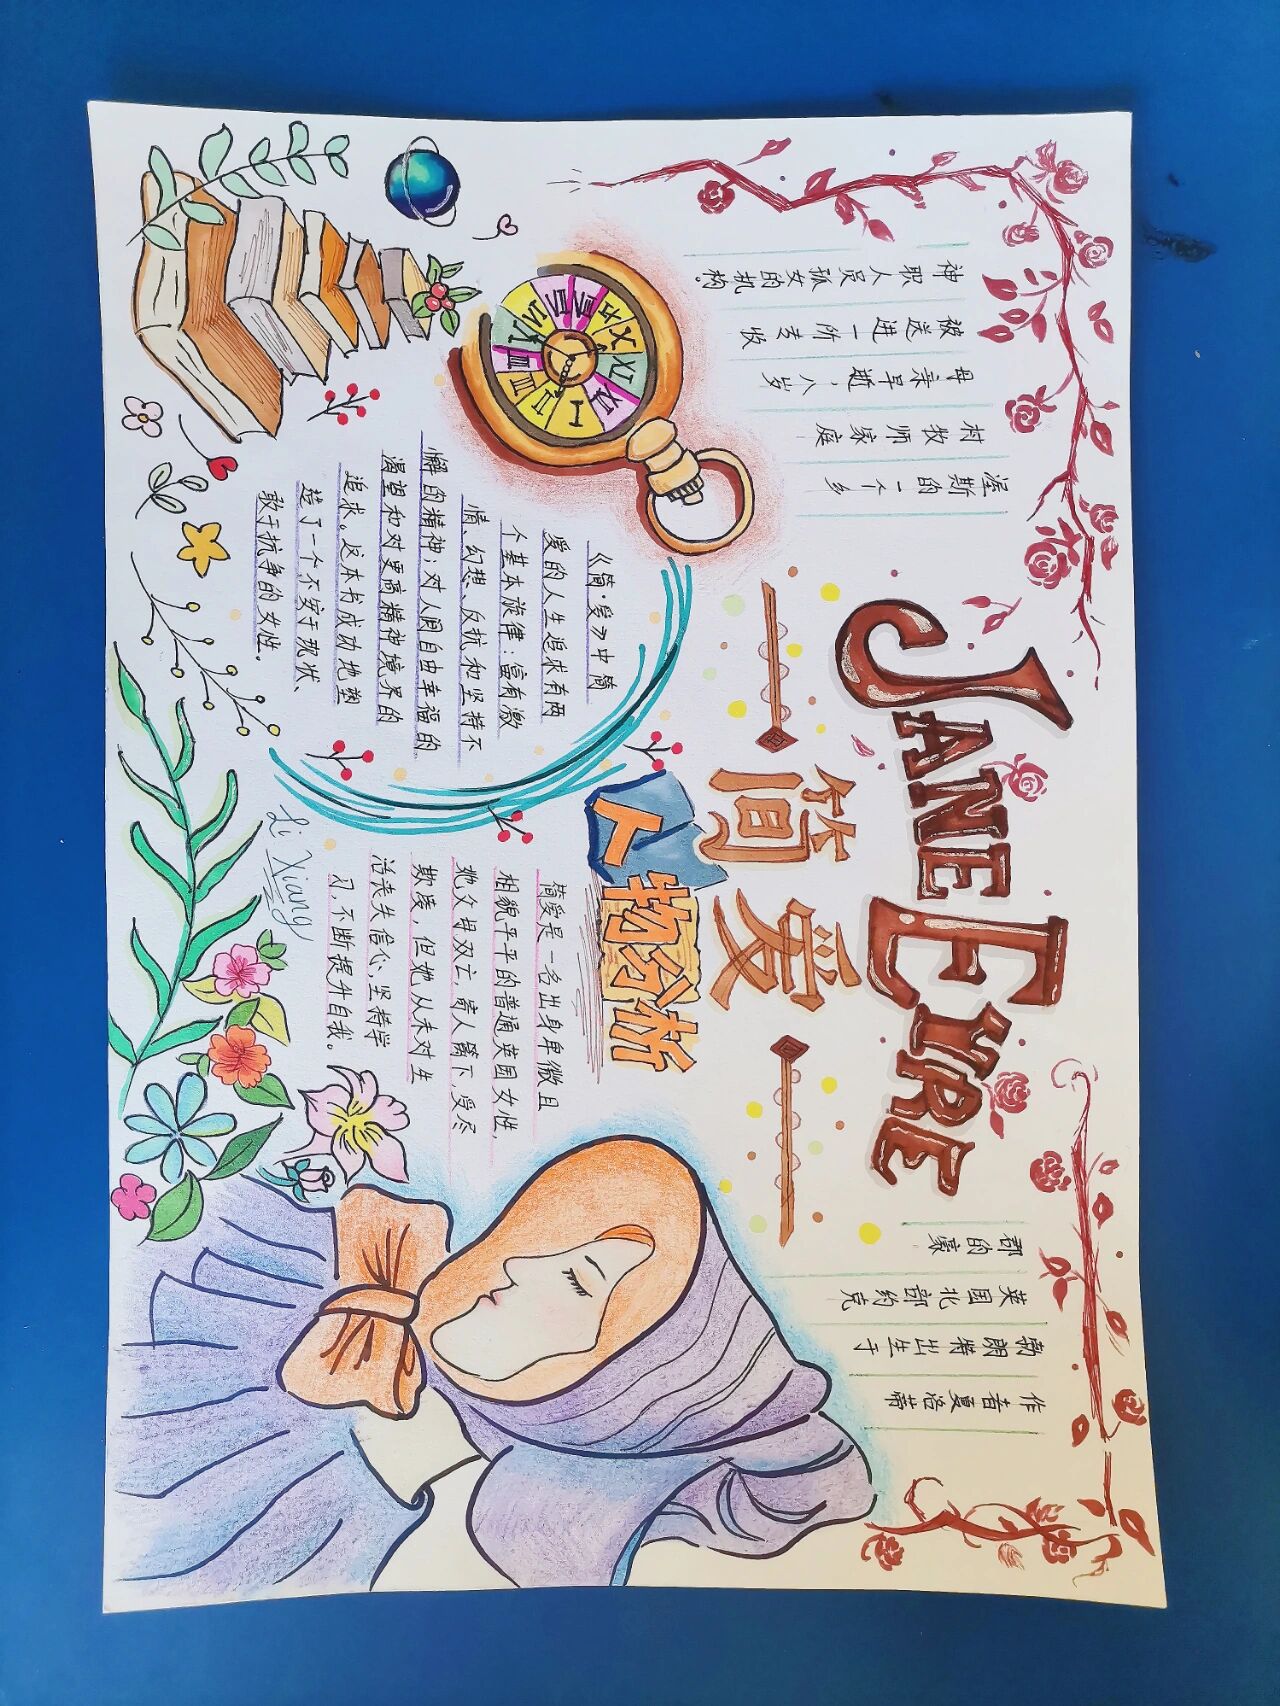 JANE EYRE
简爱
作者夏洛蒂
勃朗特出生于
英国北部约克
郡的豪
渥斯的一个乡
村牧师家庭
母亲早逝,八岁
被送进一所专收
神职人员孤女的机构。
《简·爱》中简
爱的人生追求有两
个基本旋律:富有激
情、幻想、反抗和坚持不
懈的精神;对人间自由幸福的
渴望和对更高精神境界的
追求。这本书成功地塑
造了一个不安于现状、
敢于抗争的女性。
人物分析
简爱是一名出身卑微且
相貌平平的普通英国女性,
她父母双亡,寄人篱下,受尽
欺凌,但她从未对生
活丧失信心,坚持学
习,不断提升自我。
Li Xiang